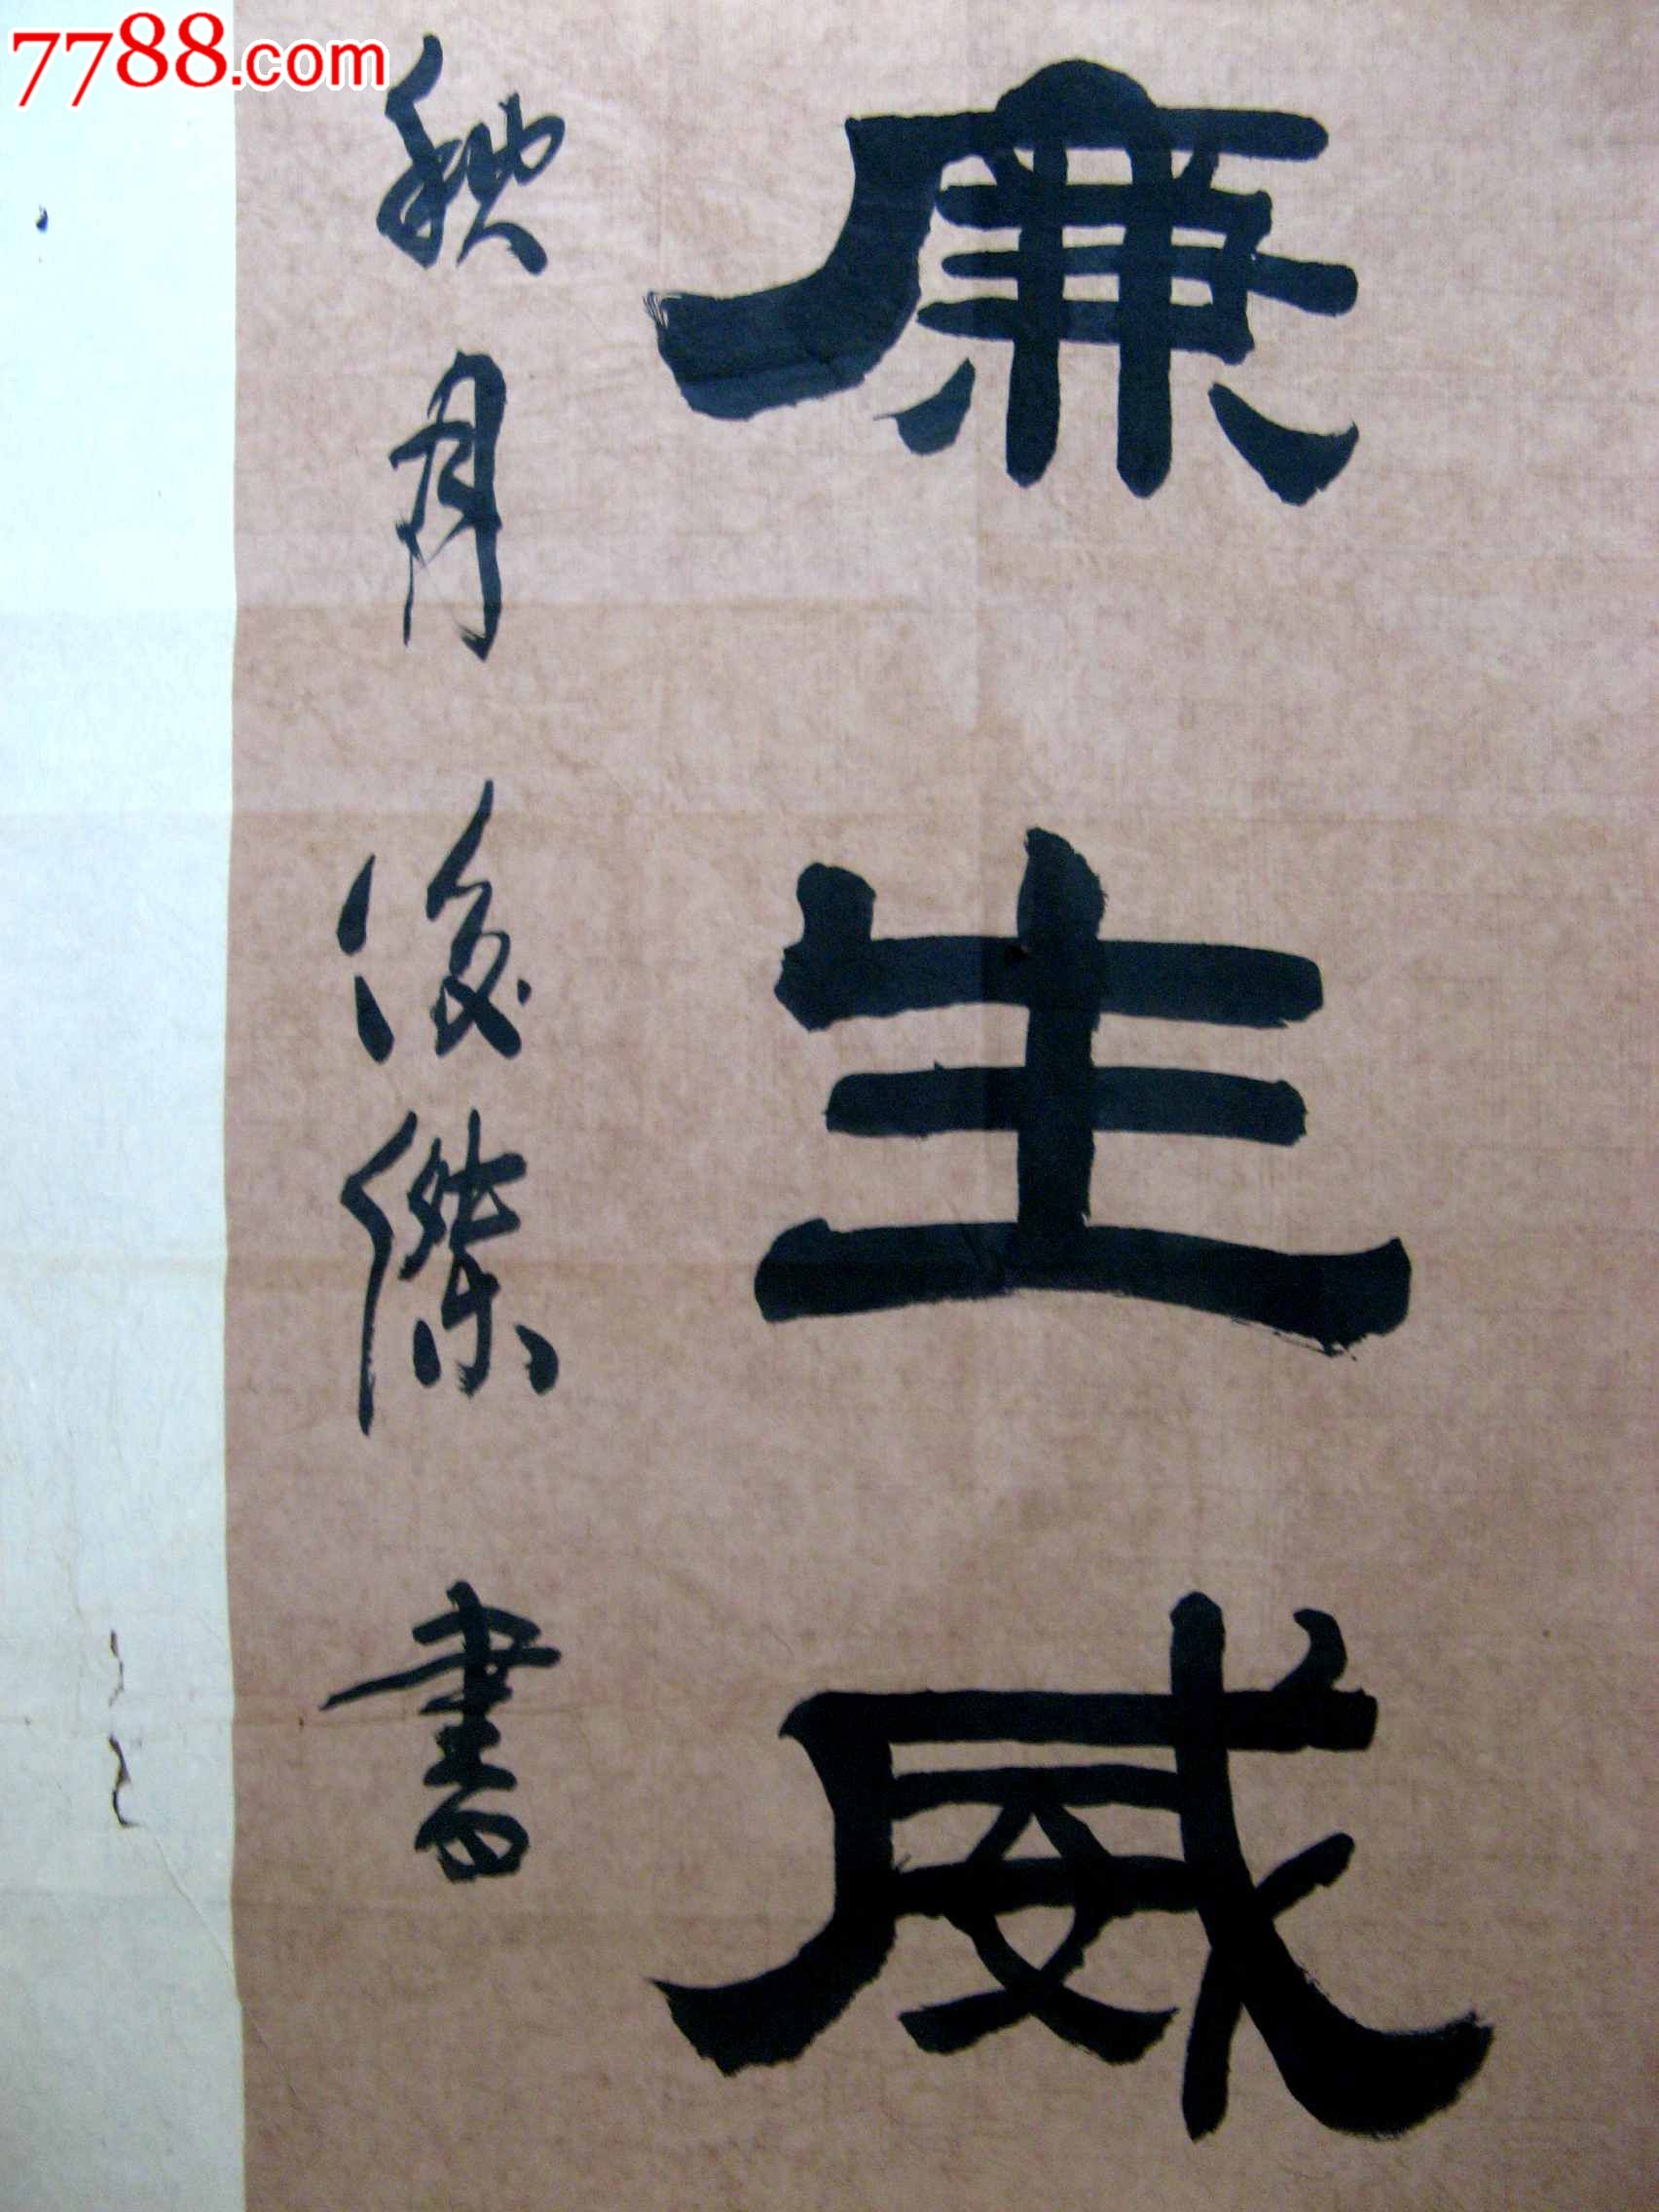 7788.com
廉生威
秋月俊傑書